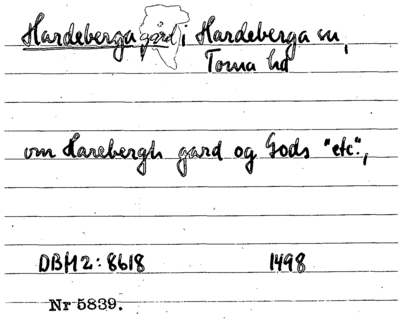 Hardeberga gård i Hardeberga sn,
Torna hd
om Harebergh gard og Gods "etc",
DBH 2: 8618 1498
Nr 5839.